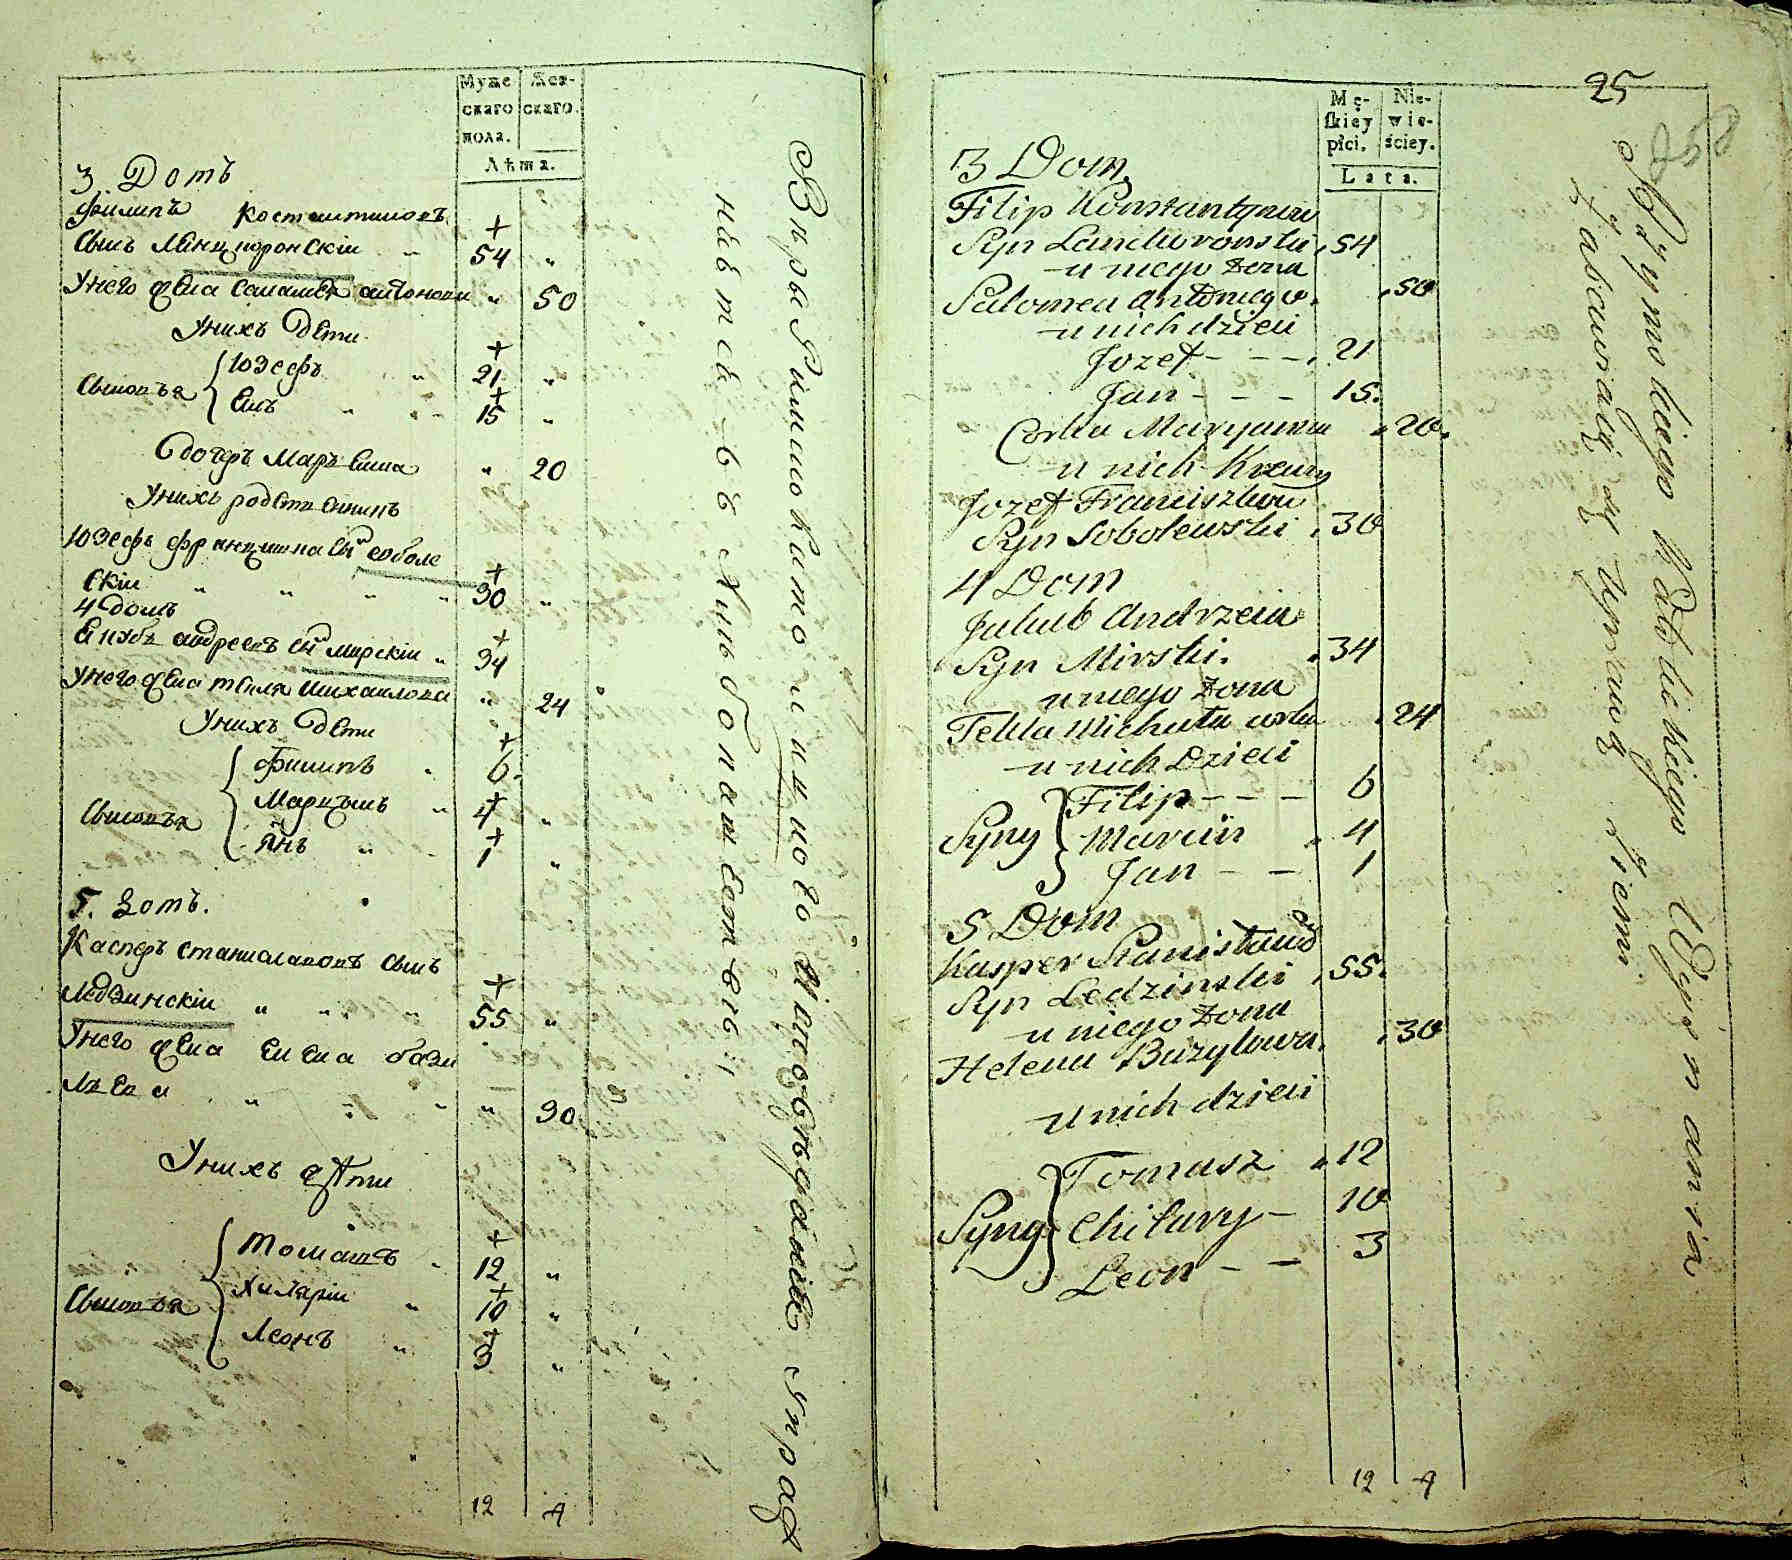 Муже
скаго
пола.
Жен-
скаго.
Лѣта.
3 Домъ
Филипъ Костантиновъ
сынъ Ланцкоронскiи 54
Унего жена Саламея антонова 50
Унихъ дети
Сыновья
Юзефъ 21
Янъ 15
Дочерь Марьянна 20
Унихъ родственникъ
Юзефъ францишка сынъ соболе
скiи 30
4 домъ
Якубъ андреевъ сынъ Мирскiи 34
Унего жена текля михаилова 24
Унихъ дети
Сыновья
Филипъ 6
Марцынъ 4
Янъ 1
5. Домъ.
Касперъ станиславовъ сынъ
Ледзинскiи 55
Унего жена елена бази
лева 30
Унихъ дѣти
Сыновья
Томашъ 12
Хилярiи 10
Леонъ 3
12 4
Вѣры Римскокатолицкого Исповѣданiя Управ
25
Mę-
ſkiey
płci.
Nie-
wie-
ściey.
Lata.
3 Dom.
Filip Konstantynow
Syn Lanckoronski 54
u niego żona
Salomea Antoniego 50
u nich dzieci
Jozef - - - 21
Jan - - - 15.
Corka Maryanna 20.
u nich Krewny
Jozef Franciszkow
Syn Sobolewski 30
4 Dom
Jakub Andrzeia
Syn Mirski. 34
u niego żona
Tekla Michała corka 24
u nich Dzieci
Syny
Filip - - - 6
Marcin 4
Jan - - 1
5 Dom
Kasper Stanisław
Syn Ledzinski 55.
u niego żona
Helena Bazylowa. 30
u nich dzieci
Syny
Tomasz 12
Chilary - 10
Leon - - 3
12 4
Rzymskiego Katolickiego Wyznania
Zabawiaią się Uprawą Ziemi